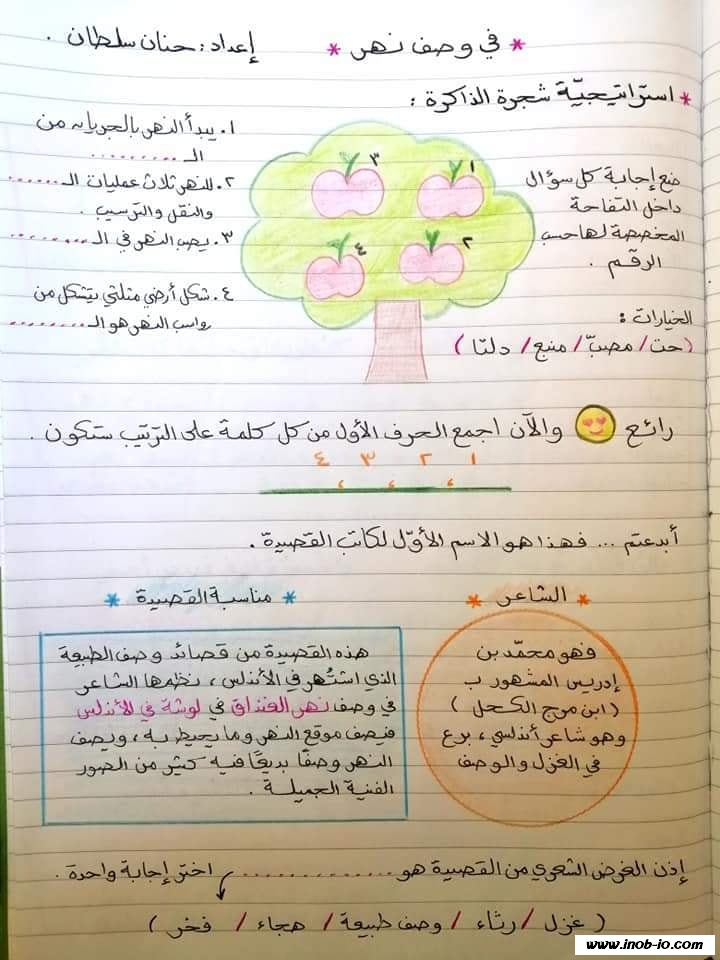 * في وصف نهر *
إعداد : حنان سلطان .
* استراتيجيّة شجرة الذاكرة :
ضع إجابة كل سؤال
داخل التفاحة
المخصصة لها حسب
الرقم .
الخيارات :
(حت / مصبّ / منبع / دلتا )
١
٢
٣
٤
١. يبدأ النهر بالجريان من
الـ ..........
٢. للنهر ثلاث عمليات الـ ......
والنقل والترسيب .
٣. يصب النهر في الـ ........
٤. شكل أرضي مثلثي يتشكل من
رواسب النهر هو الـ ........
رائع 😍 والآن اجمع الحرف الأول من كل كلمة على الترتيب ستكون .
١ ٢ ٣ ٤
، ، ،
أبدعتم ... فهذا هو الاسم الأوّل لكاتب القصيدة .
* الشاعر *
فهو محمّد بن
إدريس المشهور ب
( ابن مرج الكحل )
وهو شاعر أندلسي ، برع
في الغزل والوصف
* مناسبة القصيدة *
هذه القصيدة من قصائد وصف الطبيعة
الذي اشتُهر في الأندلس ، نظمها الشاعر
في وصف نهر الغنداق في لوشة في الأندلس
فيصف موقع النهر وما يحيط به ، ويصف
النهر وصفًا بديعًا فيه كثير من الصور
الفنية الجميلة .
إذن الغرض الشعري من القصية هو ............. اختر إجابة واحدة .
( غزل / رثاء / وصف طبيعة / هجاء / فخر )
www.inob-jo.com